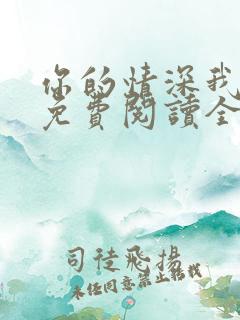 你的情深我
免費閱讀全
司徒飛揚
未经同意禁止转载